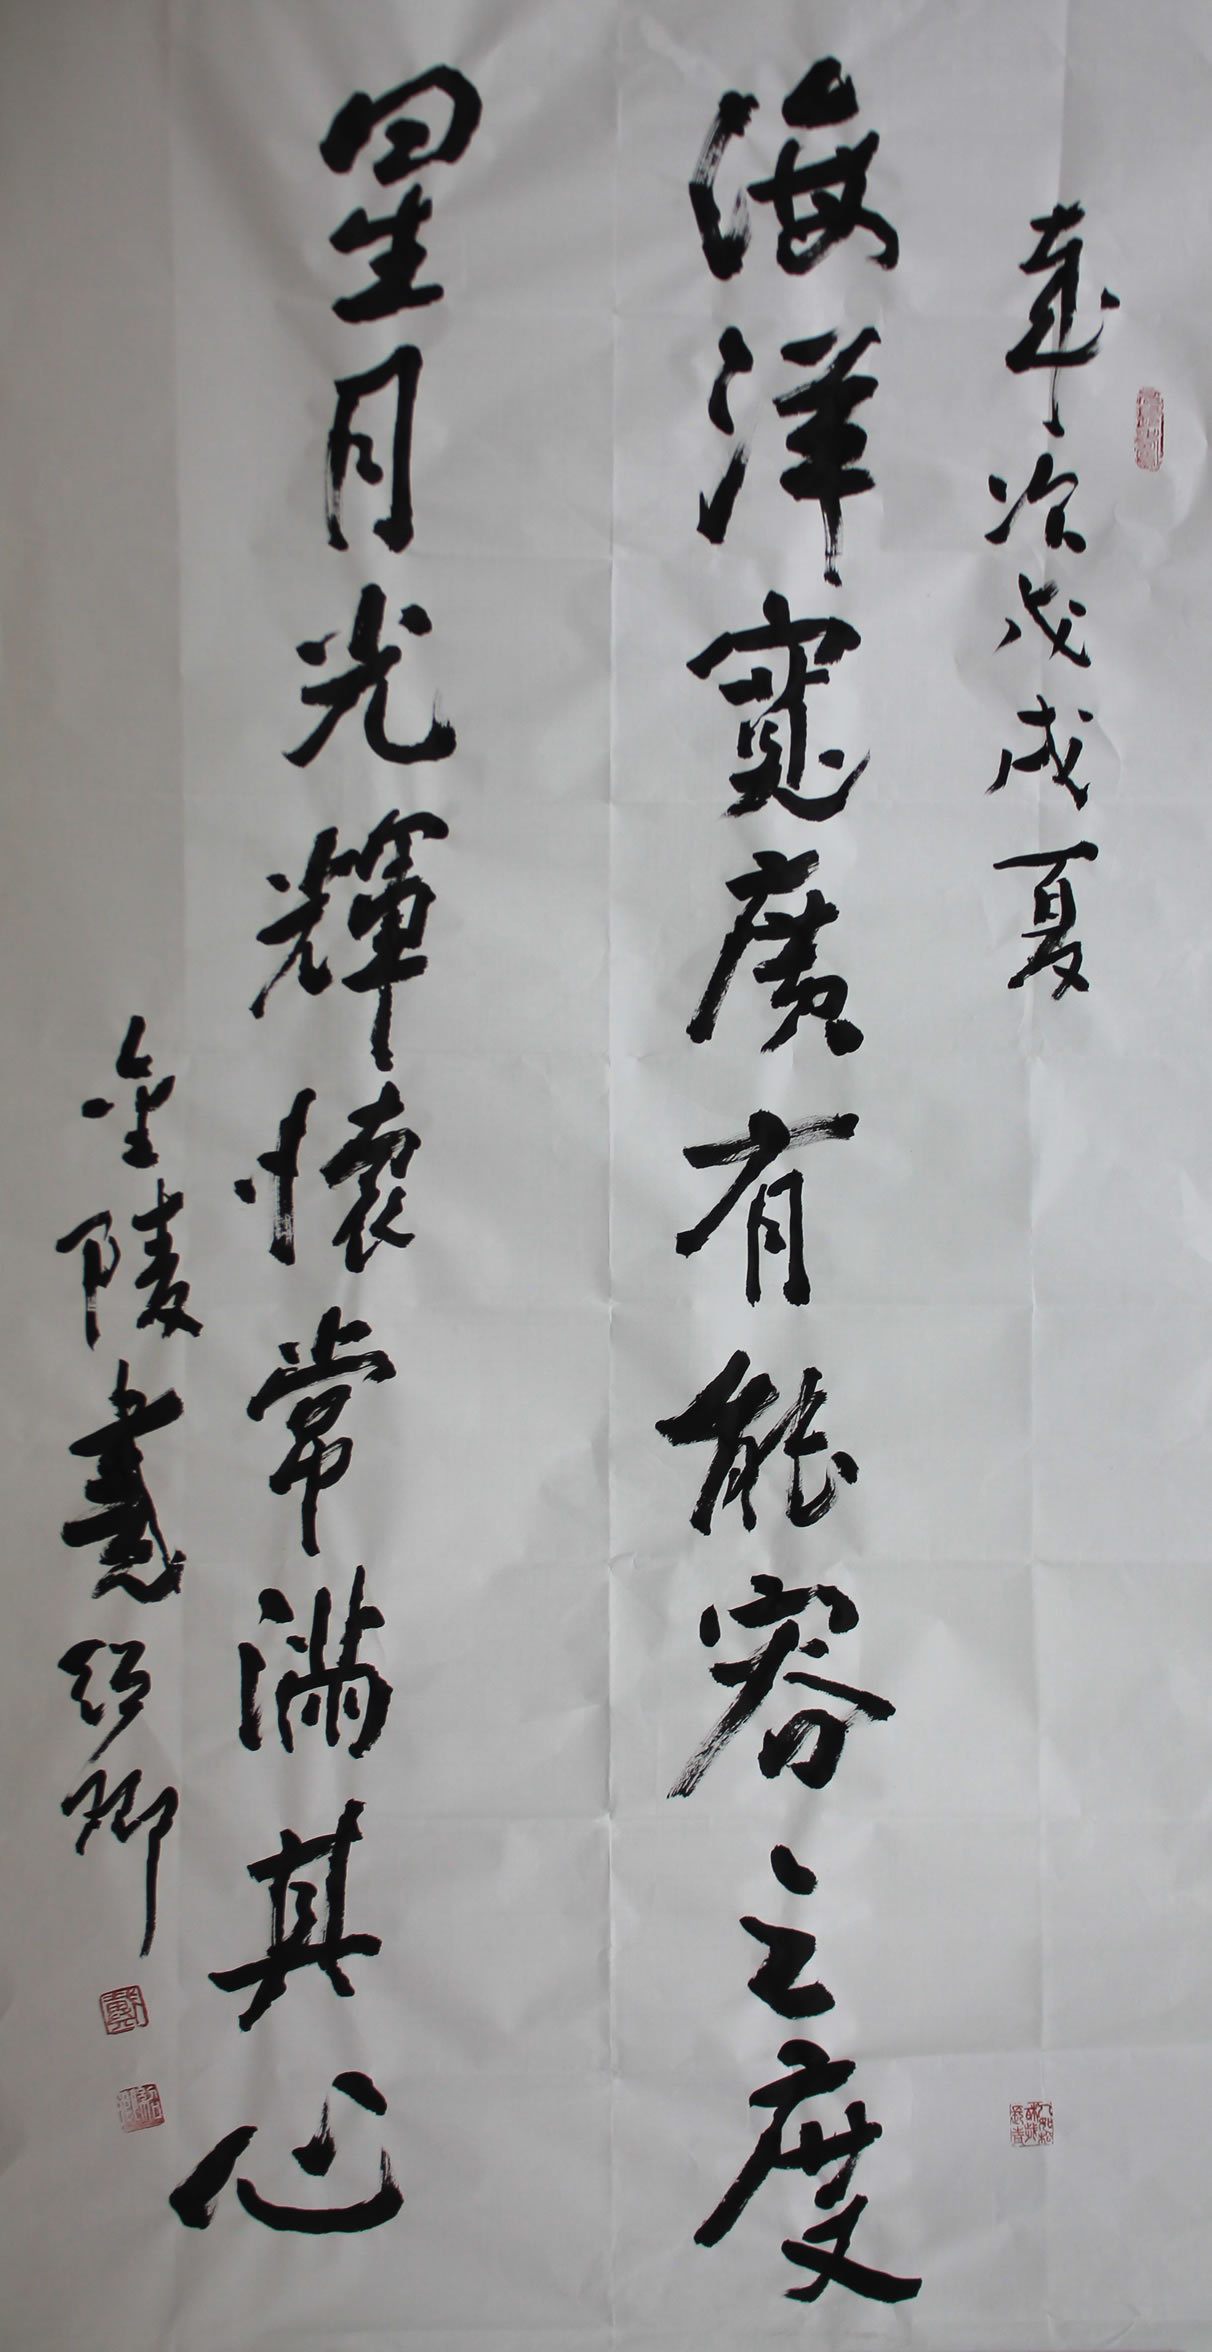 歲次戊戌夏
海洋寬廣有能容之度
星月光輝懷常滿其心
金陵戴紹卿